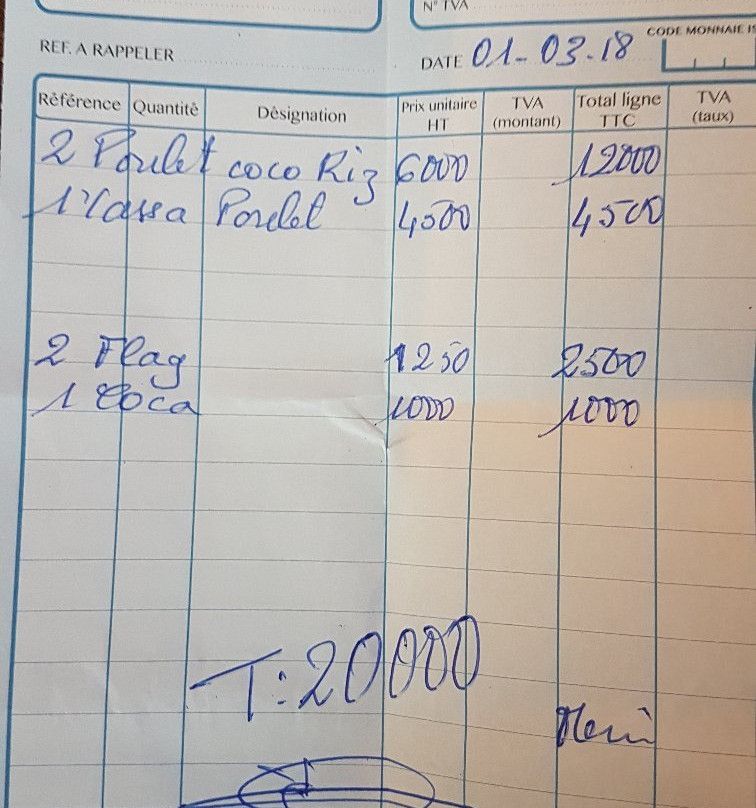 N° TVA
CODE MONNAIE IS
REF. A RAPPELER
DATE 01-03-18
Référence Quantité Désignation Prix unitaire HT TVA (montant) Total ligne TTC TVA (taux)
2 Poulet coco Riz 6000 12000
1 Yassa Poulet 4500 4500
2 Flag 1250 2500
1 Coca 1000 1000
T: 20000
Merci